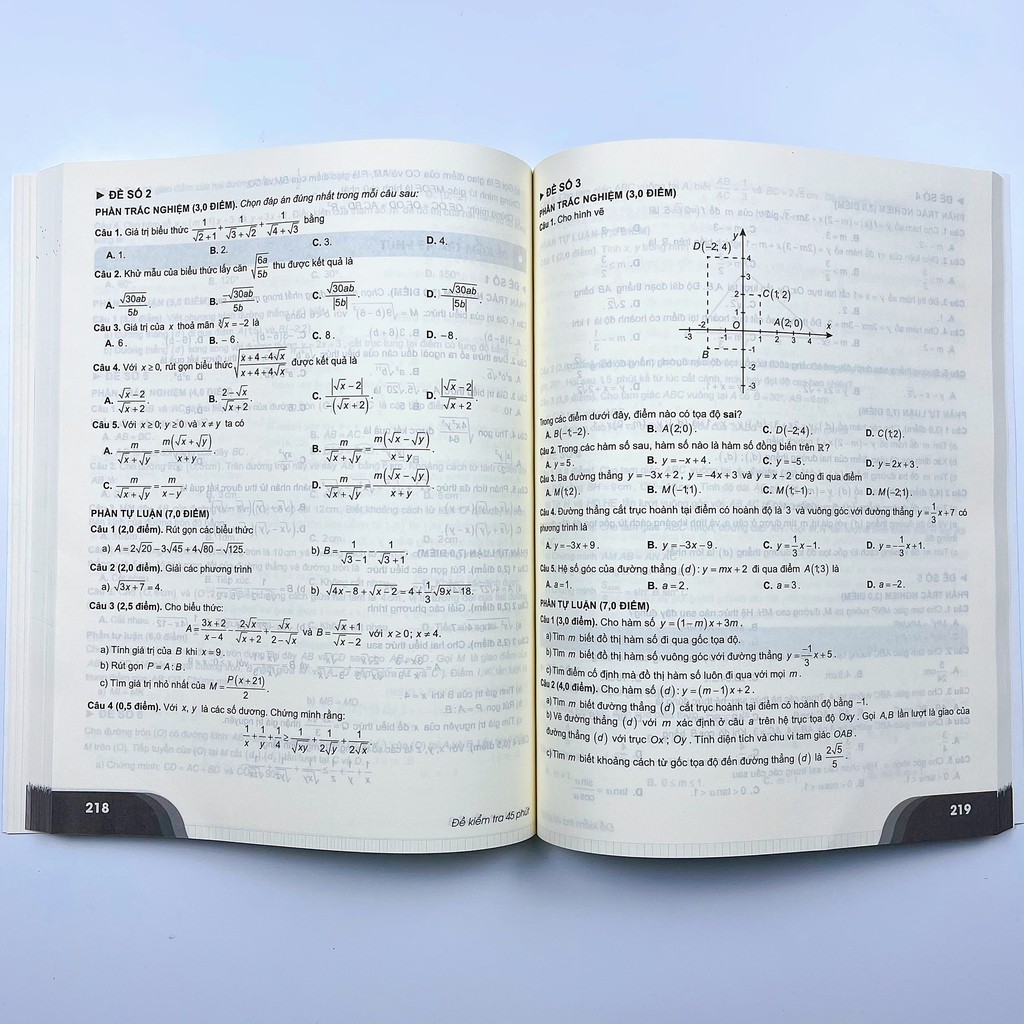 ► ĐỀ SỐ 2
PHẦN TRẮC NGHIỆM (3,0 ĐIỂM). Chọn đáp án đúng nhất trong mỗi câu sau:
Câu 1. Giá trị biểu thức 1/(√2+1) + 1/(√3+√2) + 1/(√4+√3) bằng
A. 1. B. 2. C. 3. D. 4.
Câu 2. Khử mẫu của biểu thức lấy căn √(6a/5b) thu được kết quả là
A. √30ab/5b. B. −√30ab/5b. C. √30ab/|5b|. D. −√30ab/|5b|.
Câu 3. Giá trị của x thoả mãn ∛x = −2 là
A. 6. B. −6. C. 8. D. −8.
Câu 4. Với x ≥ 0, rút gọn biểu thức √((x+4−4√x)/(x+4+4√x)) được kết quả là
A. (√x−2)/(√x+2). B. (2−√x)/(√x+2). C. |√x−2|/(−(√x+2)). D. |√x−2|/(√x+2).
Câu 5. Với x ≥ 0; y ≥ 0 và x ≠ y ta có
A. m/(√x+√y) = m(√x+√y)/(x+y). B. m/(√x+√y) = m(√x−√y)/(x−y).
C. m/(√x+√y) = m/(x−y). D. m/(√x+√y) = m(√x−√y)/(x+y).
PHẦN TỰ LUẬN (7,0 ĐIỂM)
Câu 1 (2,0 điểm). Rút gọn các biểu thức
a) A = 2√20 − 3√45 + 4√80 − √125. b) B = 1/(√3−1) − 1/(√3+1).
Câu 2 (2,0 điểm). Giải các phương trình
a) √(3x+7) = 4. b) √(4x−8) + √(x−2) = 4 + 1/3 √(9x−18).
Câu 3 (2,5 điểm). Cho biểu thức:
A = (3x+2)/(x−4) − 2√x/(√x+2) + √x/(2−√x) và B = (√x+1)/(√x−2) với x ≥ 0; x ≠ 4.
a) Tính giá trị của B khi x = 9.
b) Rút gọn P = A : B.
c) Tìm giá trị nhỏ nhất của M = P(x+21)/2.
Câu 4 (0,5 điểm). Với x, y là các số dương. Chứng minh rằng:
1/x + 1/y + 1/4 ≥ 1/√xy + 1/2√y + 1/2√x.
218
Đề kiểm tra 45 phút
► ĐỀ SỐ 3
PHẦN TRẮC NGHIỆM (3,0 ĐIỂM)
Câu 1. Cho hình vẽ
y
D(−2; 4)
4
3
2
C(1; 2)
1
-2
O
A(2; 0)
x
-3
1
2
3
4
B
-1
-2
-3
Trong các điểm dưới đây, điểm nào có tọa độ sai?
A. B(−1;−2). B. A(2;0). C. D(−2;4). D. C(1;2).
Câu 2. Trong các hàm số sau, hàm số nào là hàm số đồng biến trên ℝ?
A. y = 5. B. y = −x + 4. C. y = −5. D. y = 2x + 3.
Câu 3. Ba đường thẳng y = −3x + 2, y = −4x + 3 và y = x − 2 cùng đi qua điểm
A. M(1;2). B. M(−1;1). C. M(1;−1). D. M(−2;1).
Câu 4. Đường thẳng cắt trục hoành tại điểm có hoành độ là 3 và vuông góc với đường thẳng y = 1/3 x + 7 có
phương trình là
A. y = −3x + 9. B. y = −3x − 9. C. y = 1/3 x − 1. D. y = −1/3 x + 1.
Câu 5. Hệ số góc của đường thẳng (d): y = mx + 2 đi qua điểm A(1;3) là
A. a = 1. B. a = 2. C. a = 3. D. a = −2.
PHẦN TỰ LUẬN (7,0 ĐIỂM)
Câu 1 (3,0 điểm). Cho hàm số y = (1−m)x + 3m.
a) Tìm m biết đồ thị hàm số đi qua gốc tọa độ.
b) Tìm m biết đồ thị hàm số vuông góc với đường thẳng y = −1/3 x + 5.
c) Tìm điểm cố định mà đồ thị hàm số luôn đi qua với mọi m.
Câu 2 (4,0 điểm). Cho hàm số (d): y = (m−1)x + 2.
a) Tìm m biết đường thẳng (d) cắt trục hoành tại điểm có hoành độ bằng −1.
b) Vẽ đường thẳng (d) với m xác định ở câu a trên hệ trục tọa độ Oxy. Gọi A,B lần lượt là giao của
đường thẳng (d) với trục Ox; Oy. Tính diện tích và chu vi tam giác OAB.
c) Tìm m biết khoảng cách từ gốc tọa độ đến đường thẳng (d) là 2√5/5.
219